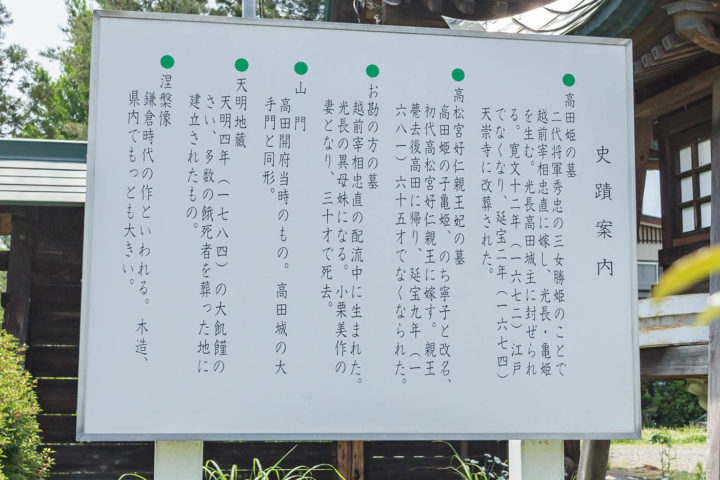 史蹟案内
●高田姫の墓
二代将軍秀忠の三女勝姫のことで
越前宰相忠直に嫁し、光長・亀姫
を生む。光長高田城主に封ぜられ
る。寛文十二年（一六七二）江戸
でなくなり、延宝二年（一六七四）
天崇寺に改葬された。
●高松宮好仁親王妃の墓
高田姫の子亀姫、のち寧子と改名、
初代高松宮好仁親王に嫁す。親王
薨去後高田に帰り、延宝九年（一
六八一）六十五才でなくなられた。
●お勘の方の墓
越前宰相忠直の配流中に生まれた。
光長の異母妹になる。小栗美作の
妻となり、三十才で死去。
●山門
高田開府当時のもの。高田城の大
手門と同形。
●天明地蔵
天明四年（一七八四）の大飢饉の
さい、多数の餓死者を葬った地に
建立されたもの。
●涅槃像
鎌倉時代の作といわれる。木造、
県内でもっとも大きい。